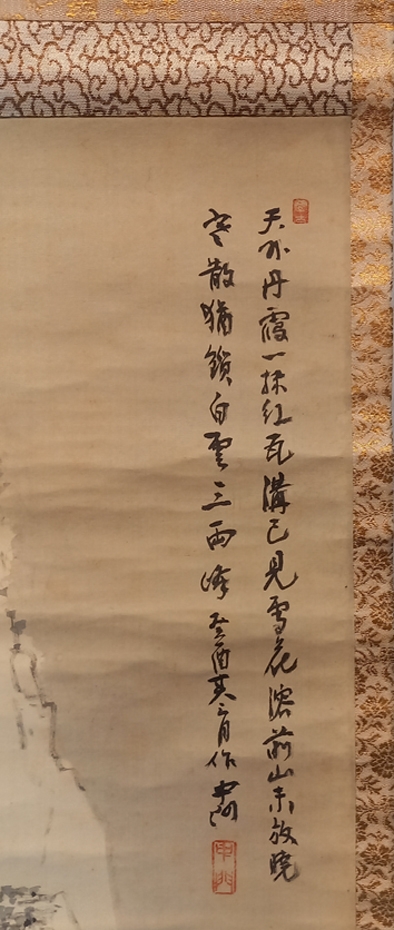 天外丹霞一抹紅瓦溝已見雪花溶前山未放曉
寒散猶鎖白雲三兩峰 癸酉 月作